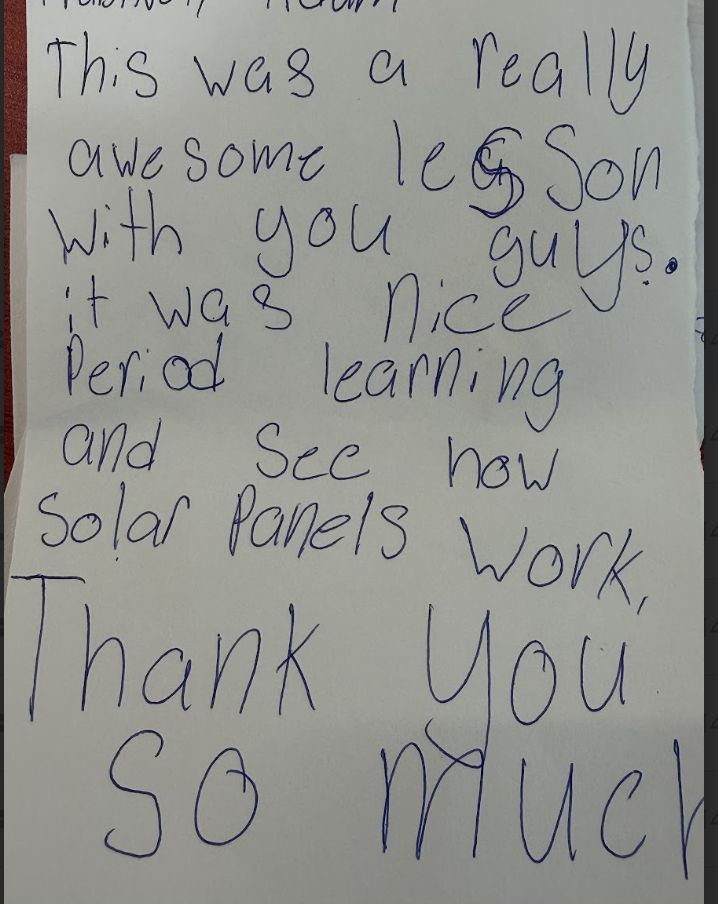 This was a really
awesome lesson
with you guys.
it was nice
Period learning
and see how
Solar Panels work,
Thank you
So much